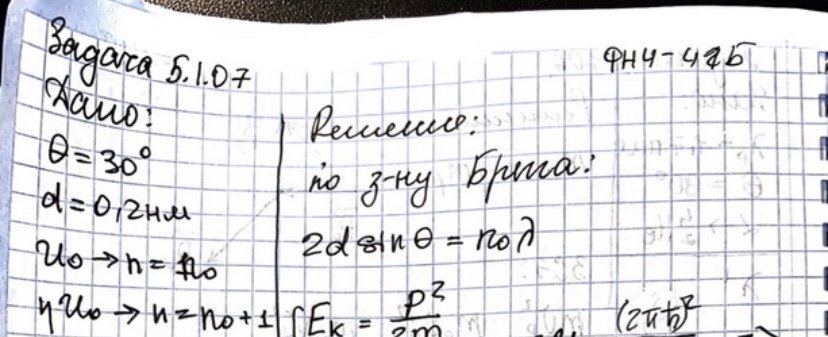 Задача 5.1.07
ФН4-42Б
Дано:
θ = 30°
d = 0,2 нм
U₀ → n = n₀
ηU₀ → n = n₀ + 1
Решение:
по з-ну Брэгга:
2d sin θ = n₀λ
{Eₖ = p²/2m
(2πħ)²